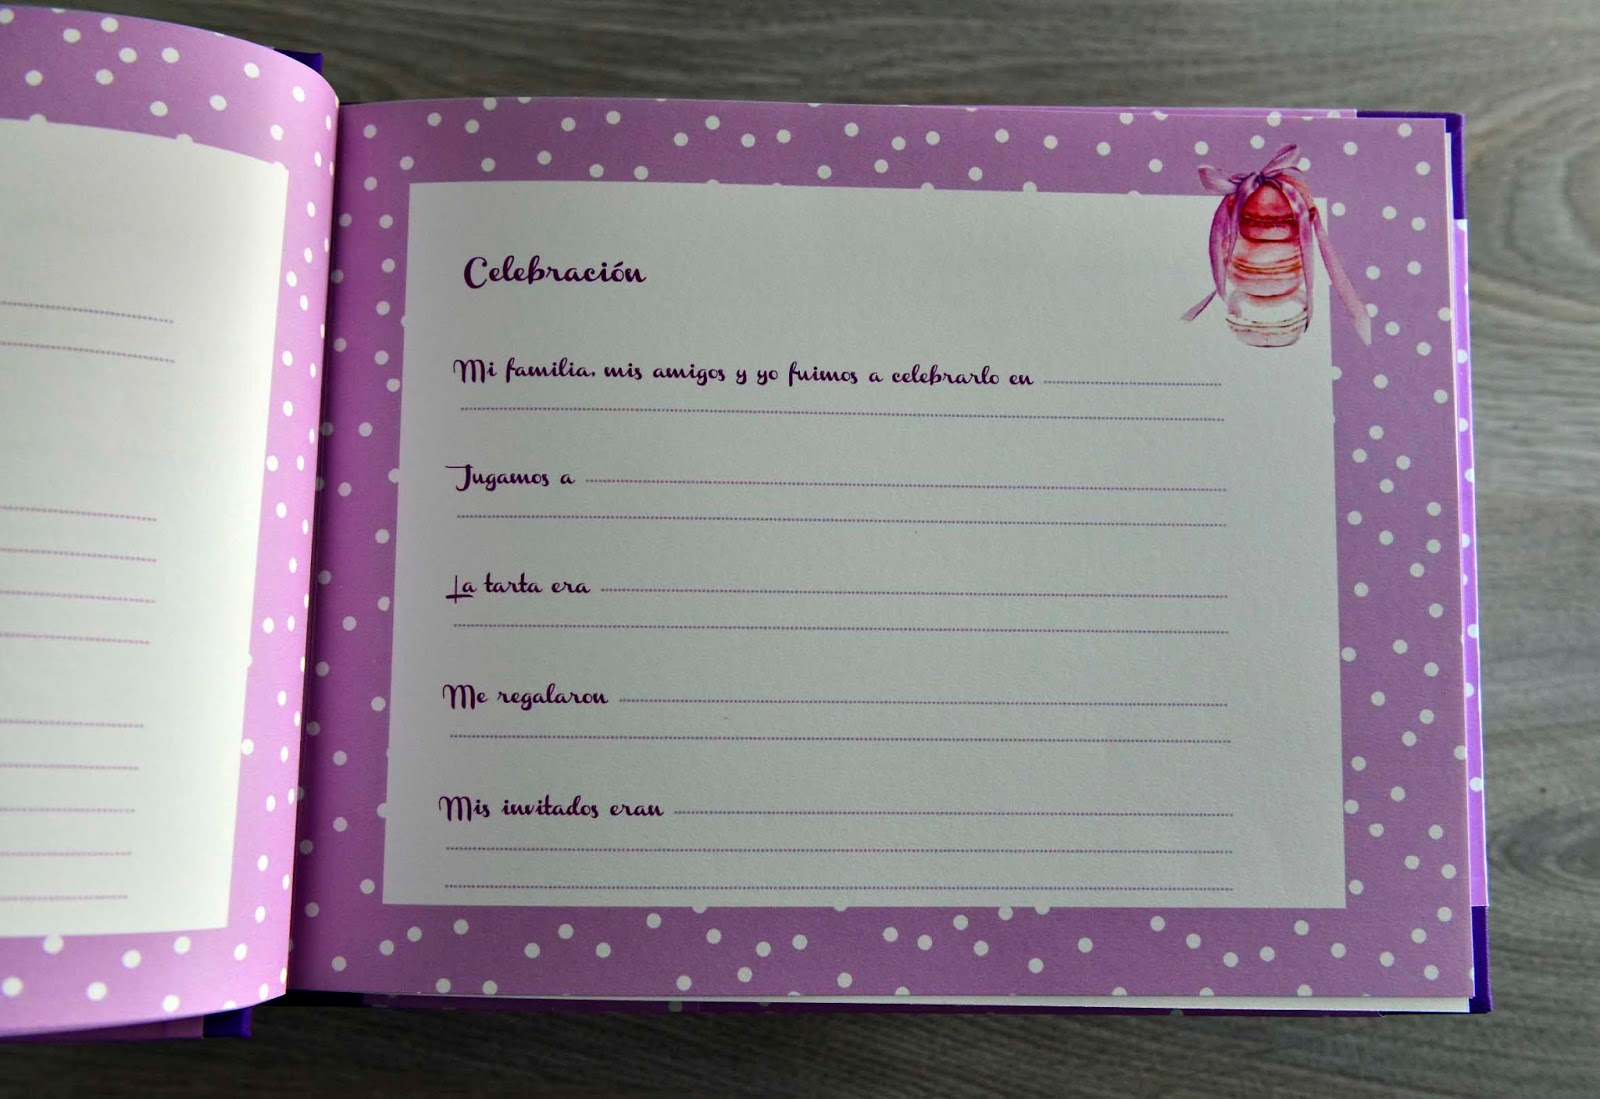 Celebración
Mi familia, mis amigos y yo fuimos a celebrarlo en
Jugamos a
La tarta era
Me regalaron
Mis invitados eran